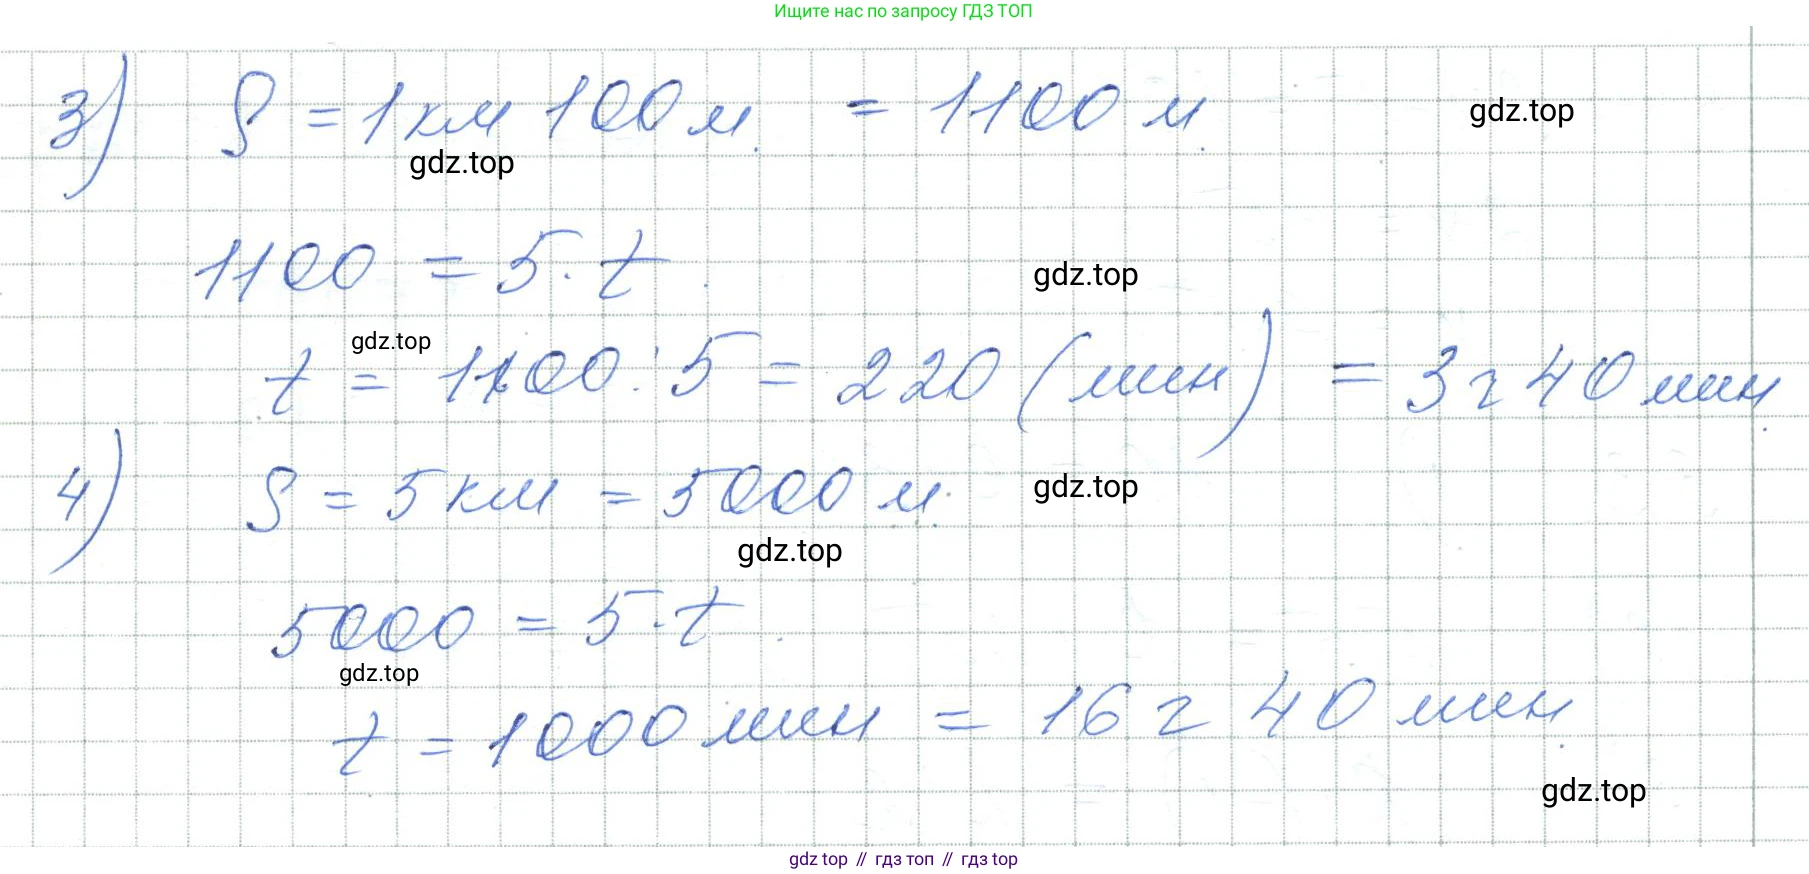 Ищите нас по запросу ГДЗ ТОП
3) S = 1 км 100 м. = 1100 м.
gdz.top
gdz.top
1100 = 5 · t.
gdz.top
gdz.top
t = 1100 : 5 = 220 (мин) = 3 ч 40 мин.
4) S = 5 км = 5000 м.
gdz.top
gdz.top
5000 = 5 · t.
gdz.top
t = 1000 мин = 16 ч 40 мин.
gdz.top
gdz top // гдз топ // гдз top